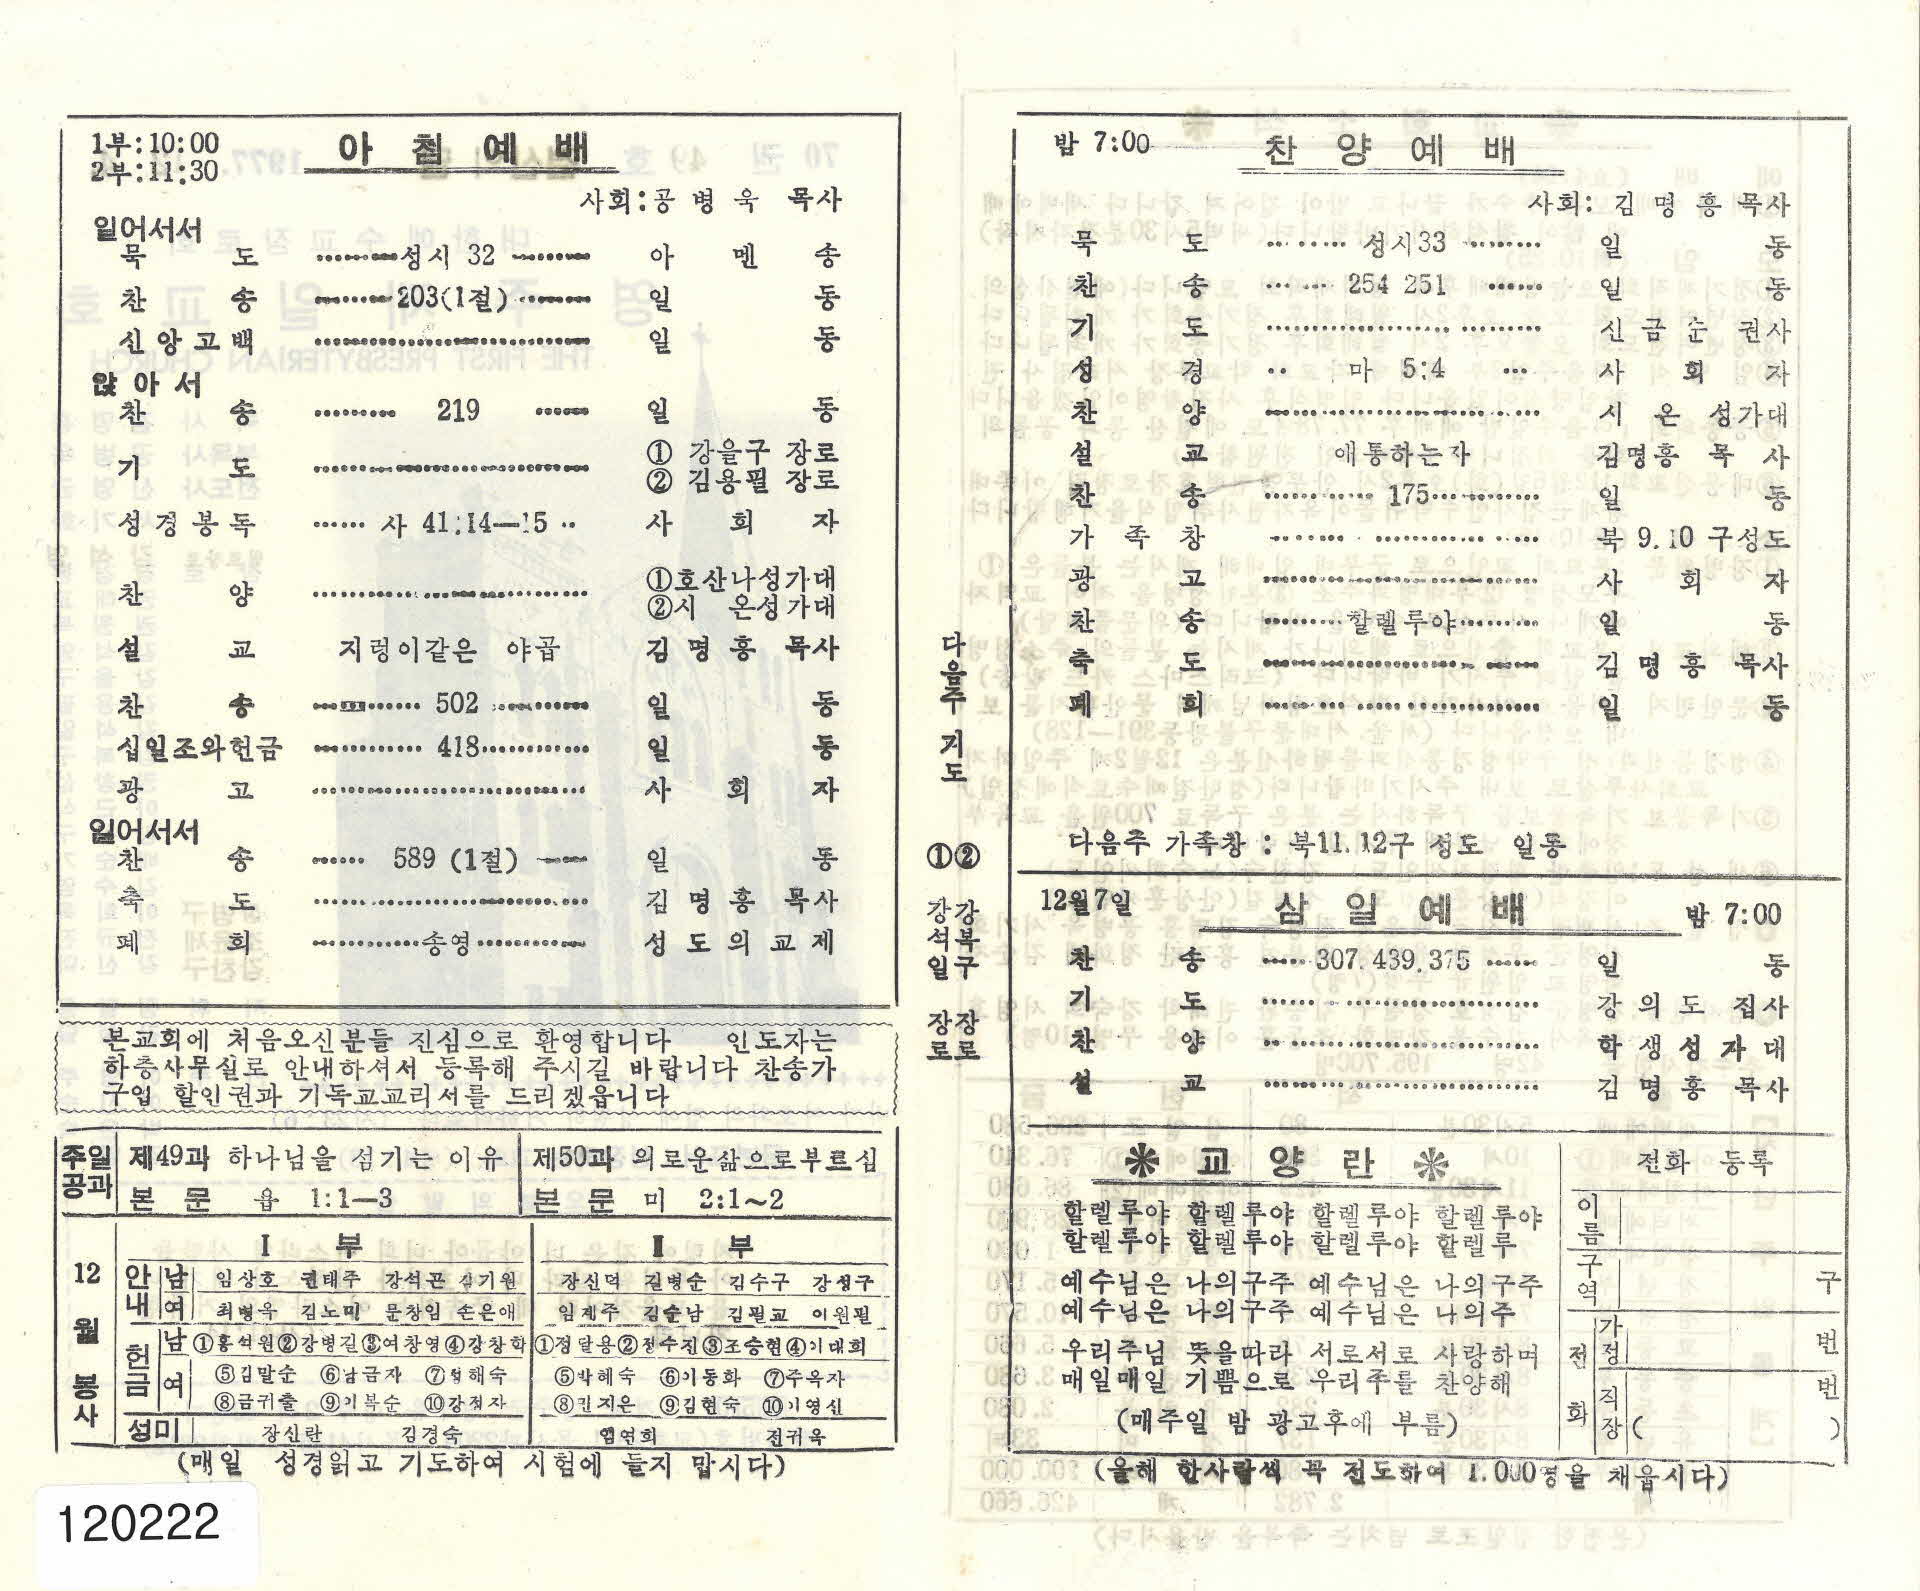 1부:10:00
2부:11:30
아 침 예 배
사회:공 병 욱 목사
일어서서
묵 도 성시 32 아 멘 송
찬 송 203(1절) 일 동
신앙고백 일 동
앉아서
찬 송 219 일 동
기 도 ① 강을구 장로
② 김용필 장로
성경봉독 사 41:14—15 사 회 자
찬 양 ①호산나성가대
②시 온성가대
설 교 지렁이같은 야곱 김명흥 목사
찬 송 502 일 동
십일조와헌금 418 일 동
광 고 사 회 자
일어서서
찬 송 589 (1절) 일 동
축 도 김명흥 목사
폐 회 송영 성도의교제
본교회에 처음오신분들 진심으로 환영합니다 인도자는
하층사무실로 안내하셔서 등록해 주시길 바랍니다 찬송가
구입 할인권과 기독교교리서를 드리겠읍니다
주일공과 제49과 하나님을 섬기는 이유 제50과 의로운삶으로부르심
본 문 욥 1:1—3 본 문 미 2:1~2
12월 봉사
Ⅰ 부 Ⅱ 부
안내 남 임상호 권태주 강석곤 김기원 장신덕 길병순 김수구 강성구
여 최병옥 김노미 문창임 손은애 임제주 김순남 김필교 이원필
헌금 남 ①홍석원②강병길③여창영④강창학 ①정달용②정수진③조승현④이대희
여 ⑤김말순 ⑥남금자 ⑦ 해숙 ⑤박혜숙 ⑥이동화 ⑦주옥자
⑧금귀출 ⑨이복순 ⑩강정자 ⑧민지은 ⑨김현숙 ⑩이영신
성미 장신란 김경숙 엄연희 전귀옥
(매일 성경읽고 기도하여 시험에 들지 맙시다)
120222
다음주 기도
①②
강석일 장로
강복구 장로
밤 7:00
찬 양 예 배
사회: 김명흥목사
묵 도 성시33 일 동
찬 송 254 251 일 동
기 도 신금순 권사
성 경 마 5:4 사 회 자
찬 양 시 온 성가대
설 교 애통하는자 김명흥 목 사
찬 송 175 일 동
가 족 창 북 9.10 구성도
광 고 사 회 자
찬 송 할렐루야 일 동
축 도 김명흥 목사
폐 회 일 동
다음주 가족창 : 북11.12구 성도 일동
12월7일
삼 일 예 배
밤 7:00
찬 송 307.439.375 일 동
기 도 강의도 집사
찬 양 학생성가대
설 교 김명흥 목사
※ 교 양 란 ※
할렐루야 할렐루야 할렐루야 할렐루야
할렐루야 할렐루야 할렐루야 할렐루
예수님은 나의구주 예수님은 나의구주
예수님은 나의구주 예수님은 나의주
우리주님 뜻을따라 서로서로 사랑하며
매일매일 기쁨으로 우리주를 찬양해
(매주일 밤 광고후에 부름)
전화 등록
이름
구역 구
전화 가정 번
직장 번
( )
(올해 한사람씩 꼭 전도하여 1.000명을 채웁시다)